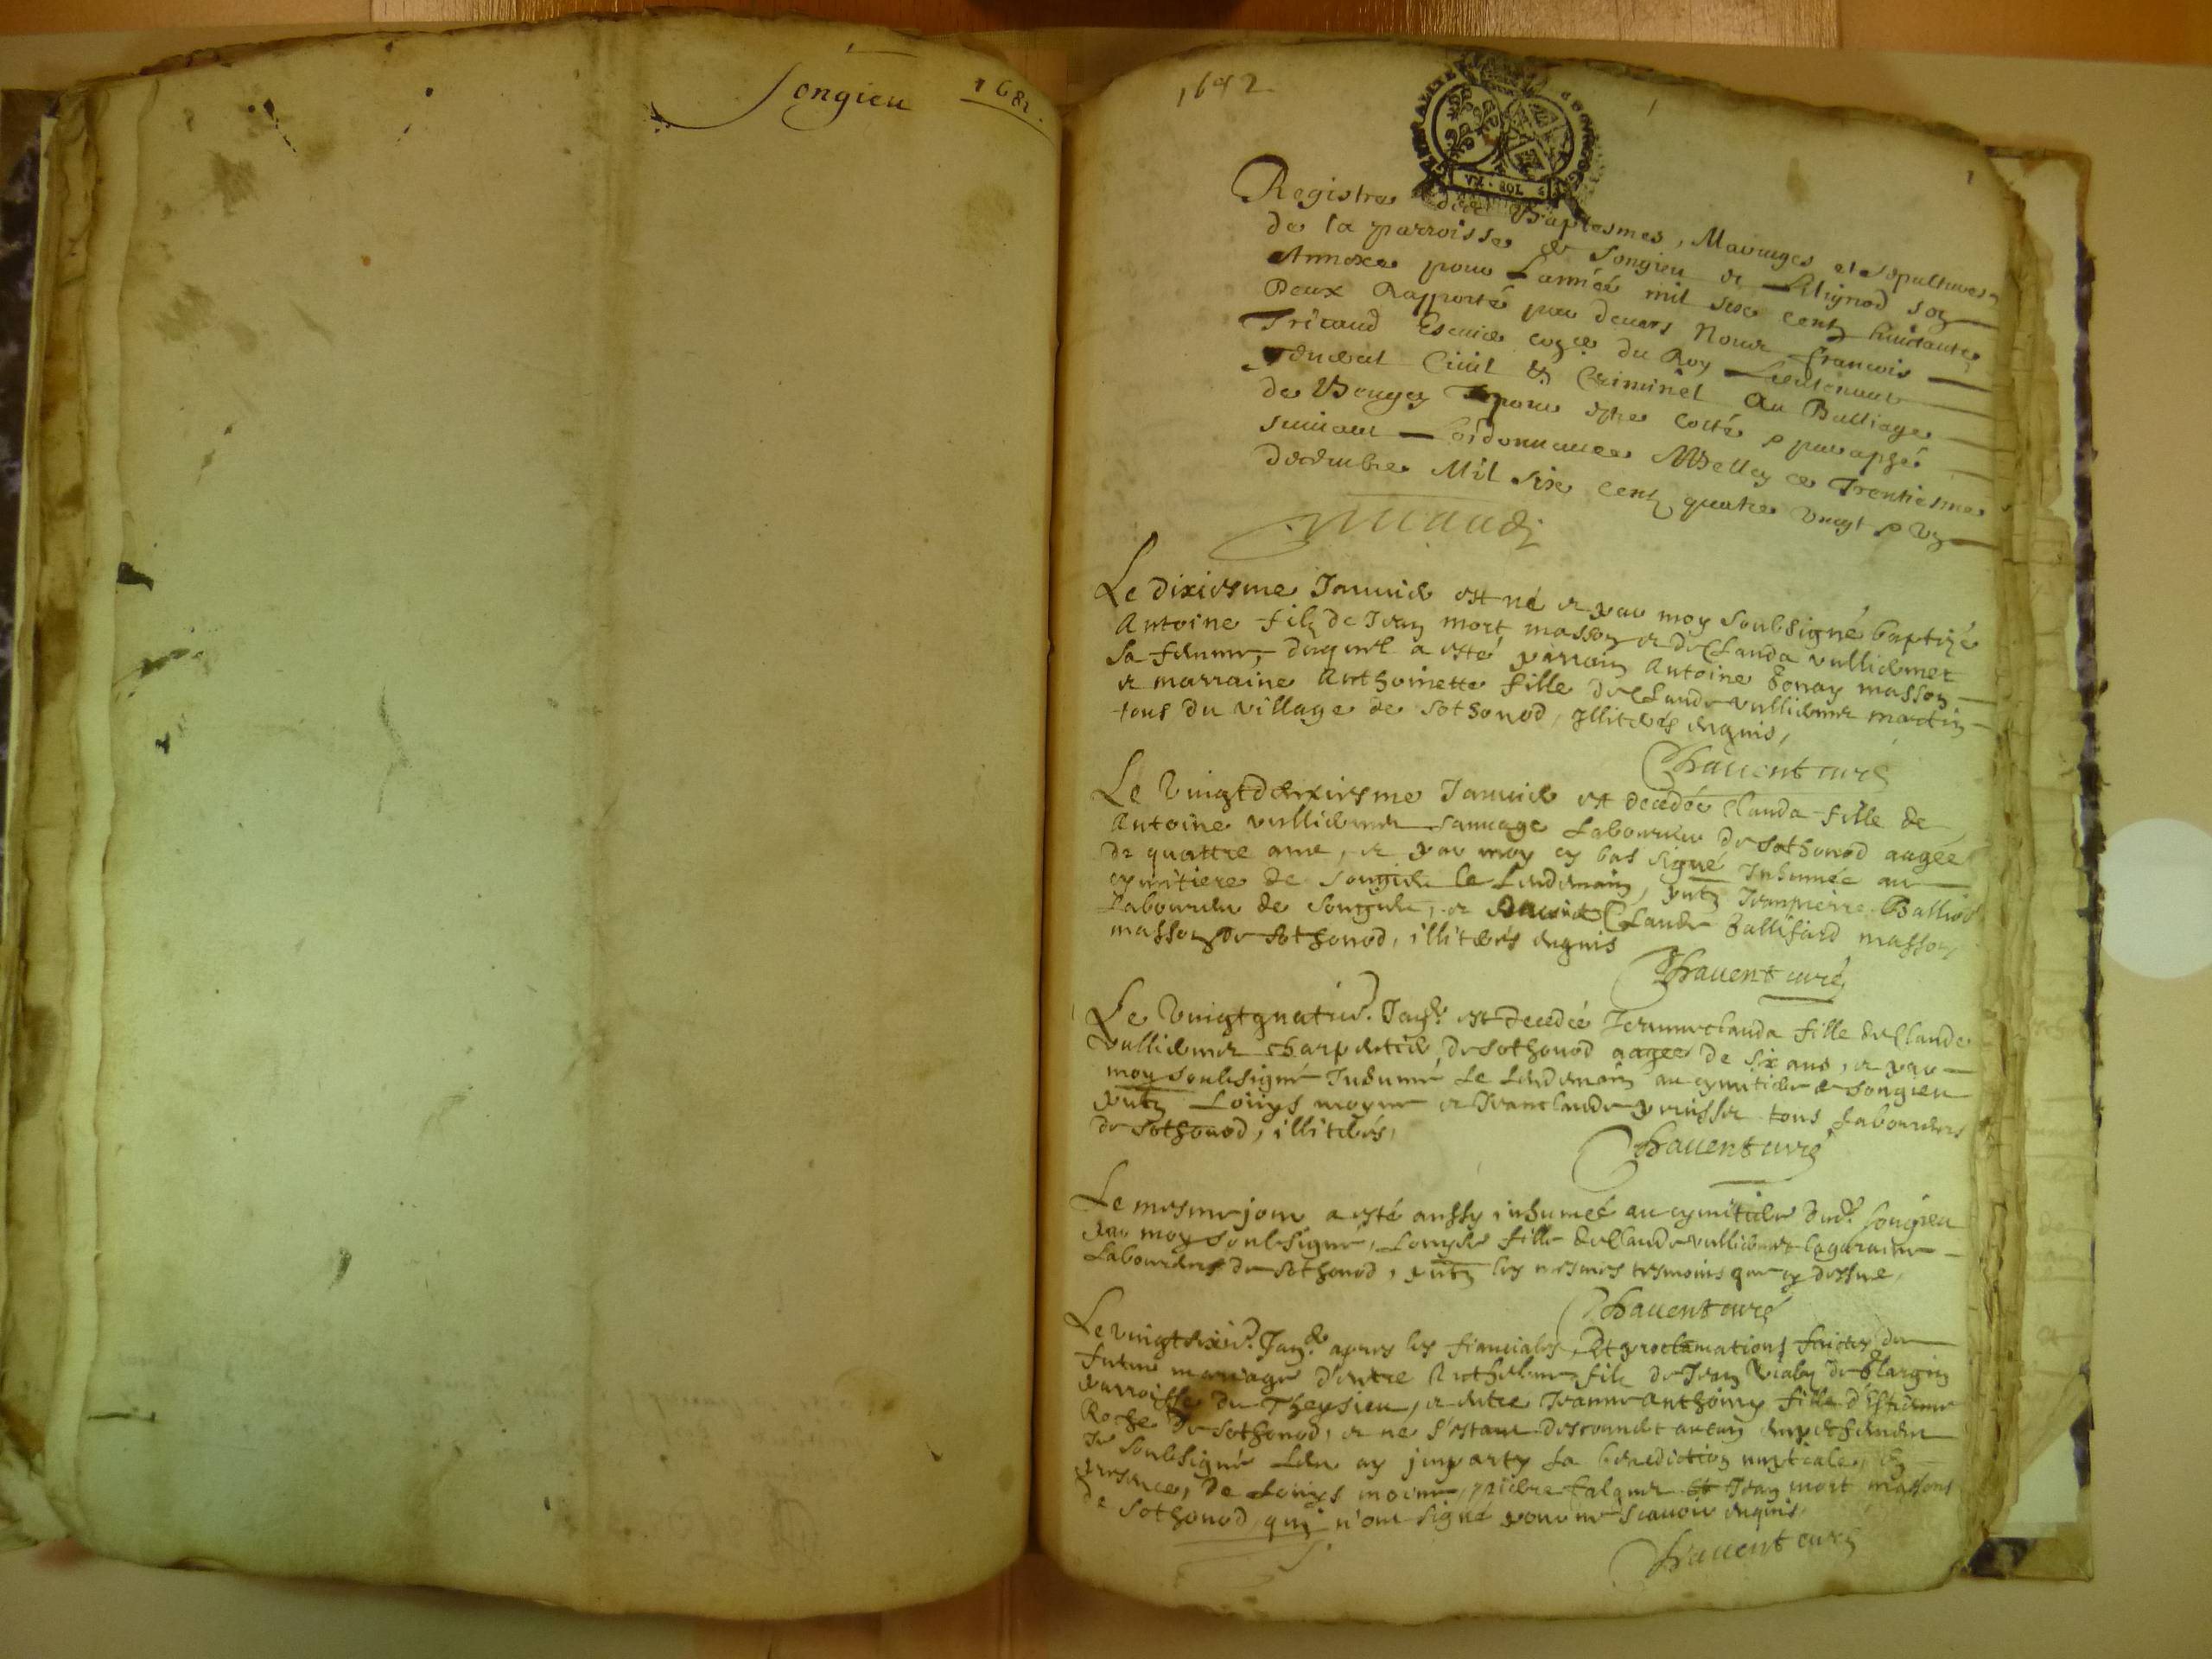 Songieu 1682.
1682
GENERALITE
VN · SOL
1
Registre des Baptesmes, Mariages et Sepultures
de la parroisse de Songieu et Lilignod son
Annexe pour L'année mil six centz huictante
Deux Rapporté par devers Nous francois
Tricaud Escuier du Roy Lieutenant
general Civil & Criminel Au Bailliage
de Bougey pour estre cotté & paraphé
suivant L'ordonnance A Belley ce Trentiesme
decembre Mil six centz quatre vingt & un
Tricaud
Le dixiesme Janvier est né et par moy soubsigné baptizé
Antoine filz de Jean mort masson et de Clauda vulliemet
sa femme, duquel a esté parrain Antoine masson
et marraine Anthoinette fille de Claude vulliemet martin
tous du village de Sothonod, illiterés enquis,
Chavent curé
Le vingtdeuxiesme Janvier est decedée Clauda fille de
Antoine vulliemet sauvage Laboureur de Sothonod aagée
de quattre ans, et par moy cy bas signé Inhumée au
cymitiere de Songieu le Lendemain, pntz Jeanpierre Balliod
Laboureur de Songieu, et Claude Ballifard masson
masson de Sothonod, illiterés enquis
Chavent curé
Le vingtquatrie. Janer. est decedée Jeanneclauda fille de Claude
vulliemet charpentier de Sothonod aagée de six ans, et par
moy soubsigné Inhumé Le Lendemain au cymitiere de Songieu
pntz Louys moyne et Jeanclaude tous Laboureurs
de Sothonod, illiterés,
Chavent curé
Le mesme jour a esté aussy inhumée au cymitiere dud. Songieu
par moy soubsigné, Louyse fille de Claude vulliemet
Laboureurs de Sothonod, pntz les mesmes tesmoins que cy dessus,
Chavent curé
Le vingtsixie. Janer. apres les fiancialles, Et proclamations faictes du
futur mariage d'entre filz de Jean de
parroisse du Theysieu, et entre Jeanne Anthoine fille d'Estienne
Roche de Sothonod, et ne s'estant descouvert aucun empeschement
Je soubsigné Leur ay imparty La benediction nuptiale, en
presence, de Louys moine, Et Jean mort massons
de Sothonod, qui n'ont signé pour ne scavoir enquis,
Chavent curé